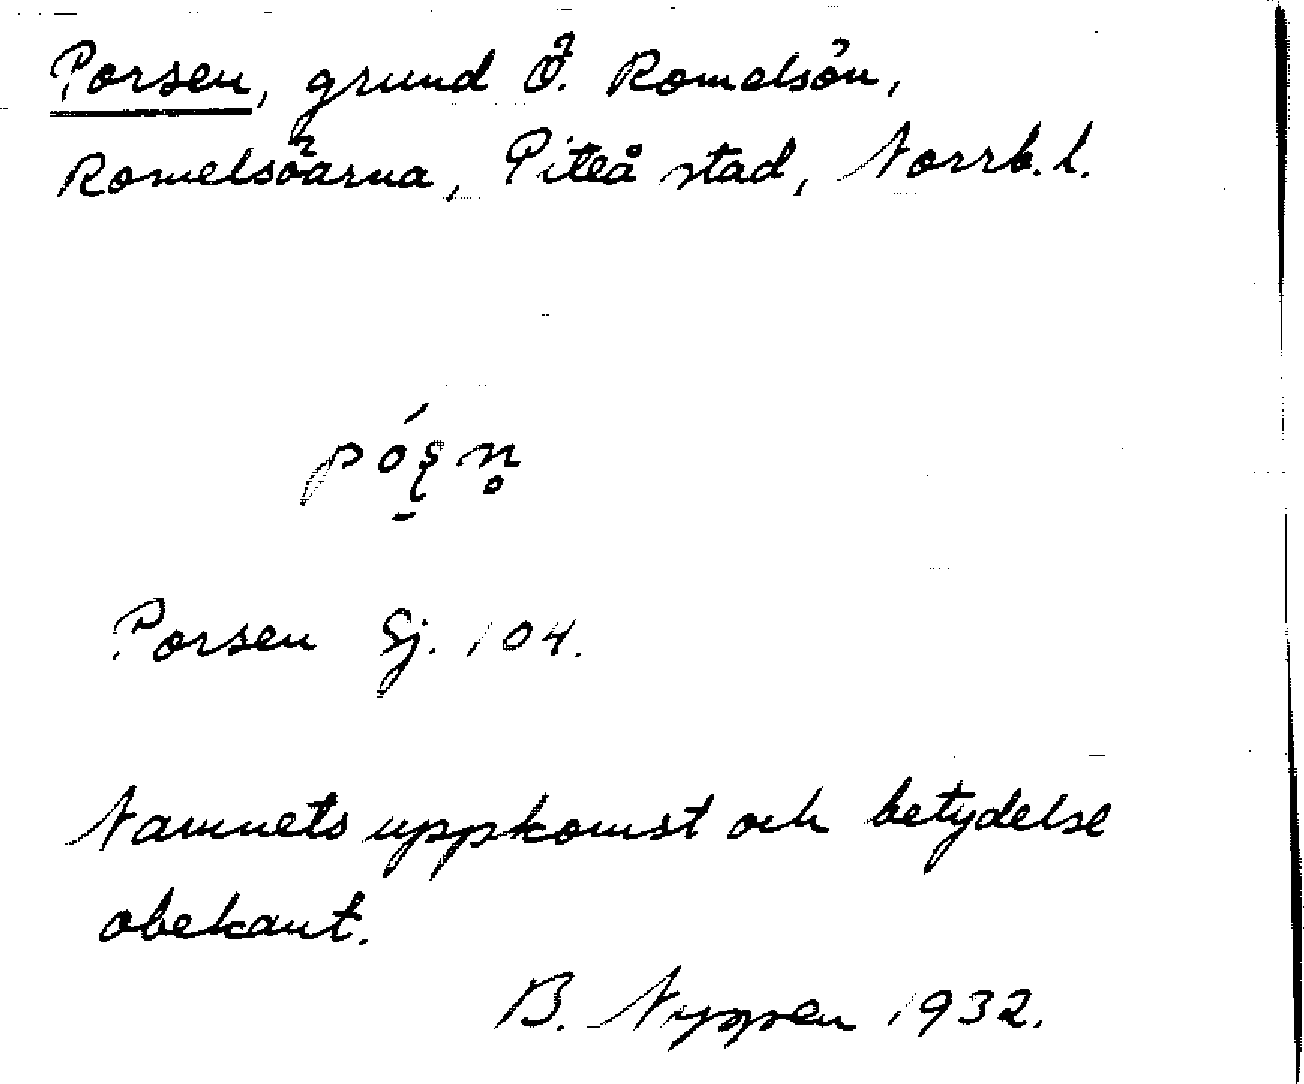 Porsen, grund Ö. Romelsön,
Romelsöarna, Piteå stad, Norrb. l.
pó̱ʂn̥
Porsen Sj. 104.
Namnets uppkomst och betydelse
obekant.
B. Nyppen 1932.